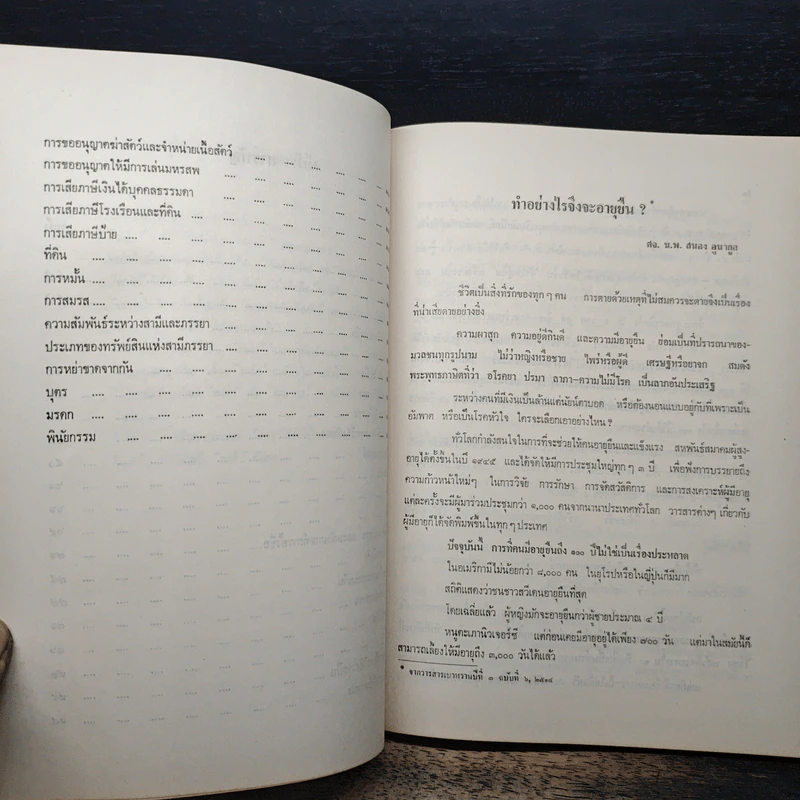 การขออนุญาตฆ่าสัตว์และจำหน่ายเนื้อสัตว์ .... .... .... ....
การขออนุญาตให้มีการเล่นมหรสพ .... .... .... ....
การเสียภาษีเงินได้บุคคลธรรมดา .... .... .... ....
การเสียภาษีโรงเรือนและที่ดิน .... .... .... ....
การเสียภาษีป้าย .... .... .... .... .... ....
ที่ดิน .... .... .... .... .... .... ....
การหมั้น .... .... .... .... .... .... ....
การสมรส .... .... .... .... .... .... ....
ความสัมพันธ์ระหว่างสามีและภรรยา .... .... .... ....
ประเภทของทรัพย์สินแห่งสามีภรรยา .... .... .... ....
การหย่าขาดจากกัน .... .... .... .... ....
บุตร .... .... .... .... .... .... ....
มรดก .... .... .... .... .... .... ....
พินัยกรรม .... .... .... .... .... ....
ทำอย่างไรจึงจะอายุยืน ? *
ศจ. น.พ. สนอง อูนากูล
ชีวิตเป็นสิ่งที่รักของทุก ๆ คน การตายด้วยเหตุที่ไม่สมควรจะตายจึงเป็นเรื่อง
ที่น่าเสียดายอย่างยิ่ง
ความผาสุก ความอยู่ดีกินดี และความมีอายุยืน ย่อมเป็นที่ปรารถนาของ-
มวลชนทุกรูปนาม ไม่ว่าหญิงหรือชาย ไพร่หรือผู้ดี เศรษฐีหรือยาจก สมดัง
พระพุทธภาษิตที่ว่า อโรคยา ปรมา ลาภา-ความไม่มีโรค เป็นลาภอันประเสริฐ
ระหว่างคนที่มีเงินเป็นล้านแต่นัยน์ตาบอด หรือต้องนอนแบบอยู่กับที่เพราะเป็น
อัมพาต หรือเป็นโรคหัวใจ ใครจะเลือกเอาอย่างไหน ?
ทั่วโลกกำลังสนใจในการที่จะช่วยให้คนอายุยืนและแข็งแรง สหพันธ์สมาคมผู้สูง-
อายุได้ตั้งขึ้นในปี ๑๙๔๕ และได้จัดให้มีการประชุมใหญ่ทุก ๆ ๓ ปี เพื่อฟังการบรรยายถึง
ความก้าวหน้าใหม่ๆ ในการวิจัย การรักษา การจัดสวัสดิการ และการสงเคราะห์ผู้มีอายุ
แต่ละครั้งจะมีผู้มาร่วมประชุมกว่า ๑,๐๐๐ คนจากนานาประเทศทั่วโลก วารสารต่างๆ เกี่ยวกับ
ผู้มีอายุก็ได้จัดพิมพ์ขึ้นในทุก ๆ ประเทศ
ปัจจุบันนี้ การที่คนมีอายุยืนถึง ๑๐๐ ปีไม่ใช่เป็นเรื่องประหลาด
ในอเมริกามีไม่น้อยกว่า ๘,๐๐๐ คน ในยุโรปหรือในญี่ปุ่นก็มีมาก
สถิติแสดงว่าชนชาวสวีเดนอายุยืนที่สุด
โดยเฉลี่ยแล้ว ผู้หญิงมักจะอายุยืนกว่าผู้ชายประมาณ ๔ ปี
หนูตะเภานิวเจอร์ซี แต่ก่อนเคยมีอายุอยู่ได้เพียง ๗๐๐ วัน แต่มาในสมัยนี้ก็
สามารถเลี้ยงให้มีอายุถึง ๓,๐๐๐ วันได้แล้ว
* จากวารสารเบาหวานปีที่ ๓ ฉบับที่ ๖, ๒๕๑๔